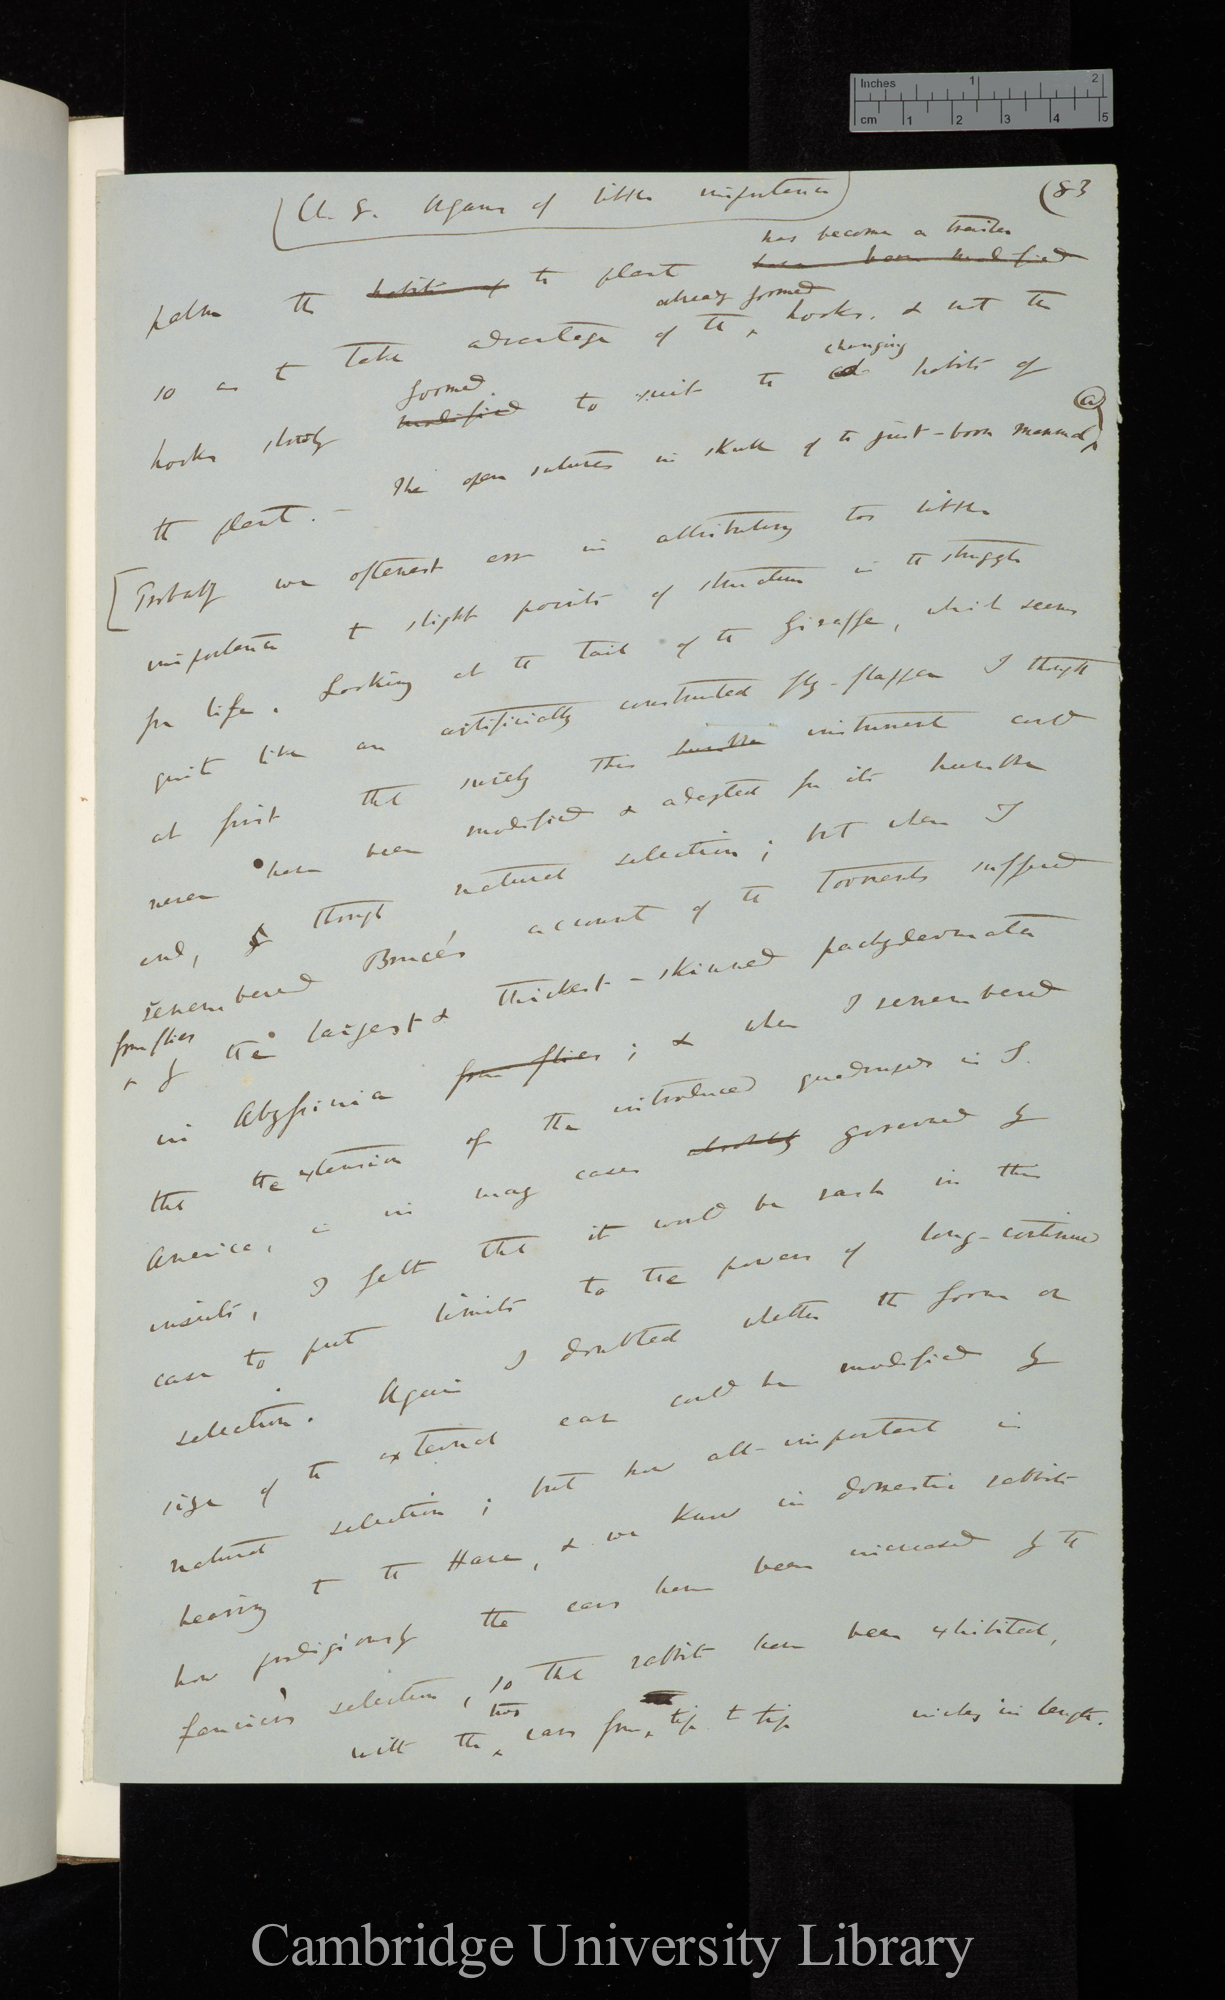 Inches 1 2
cm 1 2 3 4 5
(Ch. 8. Organs of little importance) (83
has become a trailer
palm the habits of the plant have been modified
already formed
so as to take advantage of the hooks, & not the
formed changing
hooks slowly modified to suit the habits of
the plant. — The open sutures in skull of the just-born mammal (a)
[Probably we oftenest err in attributing too little
importance to slight points of structure in the struggle
for life. Looking at the tail of the Giraffe, which seems
quite like an artificially constructed fly-flapper I thought
at first that surely this humble instrument could
never have been modified & adapted for its humble
end, through natural selection; but when I
remembered Bruce's account of the torments suffered
from flies
by the largest & thickest-skinned pachydermata
in Abyssinia from flies; & when I remembered
that the extension of the introduced quadrupeds in S.
America, is in many cases absolutely governed by
insects, I felt that it would be rash in this
case to put limits to the powers of long-continued
selection. Again I doubted whether the form or
size of the external ear could be modified by
natural selection; but how all-important is
hearing to the Hare, & we know in domestic rabbits
how prodigiously the ears have been increased by the
fancier's selection, so that rabbits have been exhibited,
two
with the ears from tip to tip inches in length.
Cambridge University Library